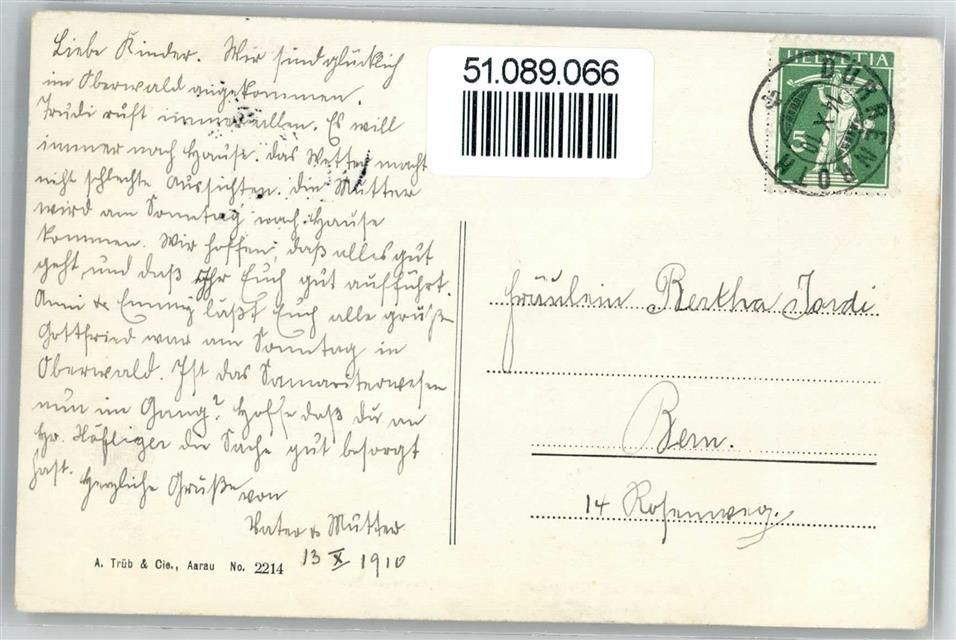 Liebe Kinder. Wir sind glücklich
im Oberwald angekommen.
Trudi ruft immer allen. Es will
immer nach Hause. das Wetter macht
nicht schlechte Aussichten. die Mutter
wird am Sonntag nach Hause
kommen. Wir hoffen, daß alles gut
geht und daß Ihr Euch gut aufführt.
Anni & Emmy läßt Euch alle grüßen
Gottfried war am Sonntag in
Oberwald. Ist das Samariterwesen
nun im Gang? Hoffe daß du an
Hr. Häfliger die Sache gut besorgt
hast. Herzliche Grüße von
Vater & Mutter
13 X 1910
A. Trüb & Cie., Aarau No. 2214
51.089.066
HELVETIA
5
DÜRRENROTH
Fräulein Bertha Jordi
Bern.
14 Rosenweg.